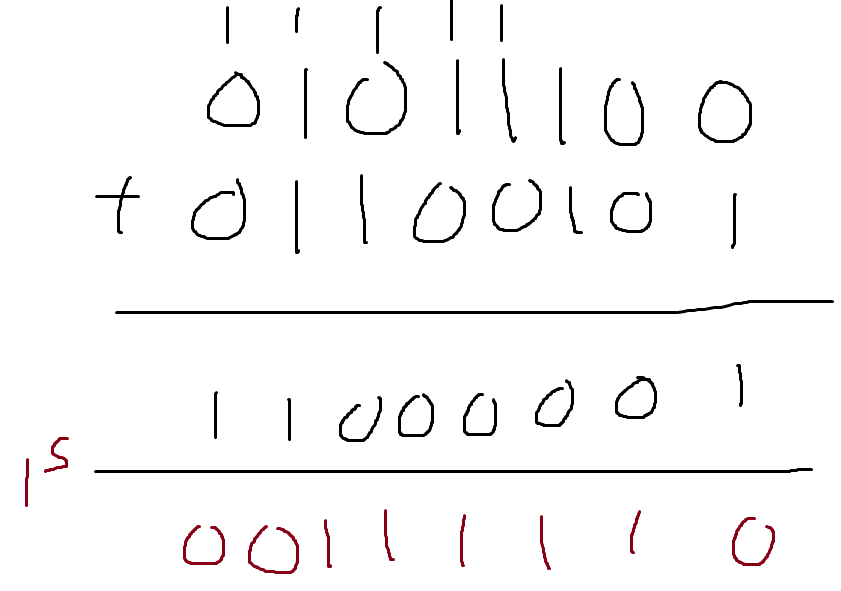 1 1 1 1 1
0 1 0 1 1 1 0 0
+ 0 1 1 0 0 1 0 1
1 1 0 0 0 0 0 1
1s
0 0 1 1 1 1 1 0